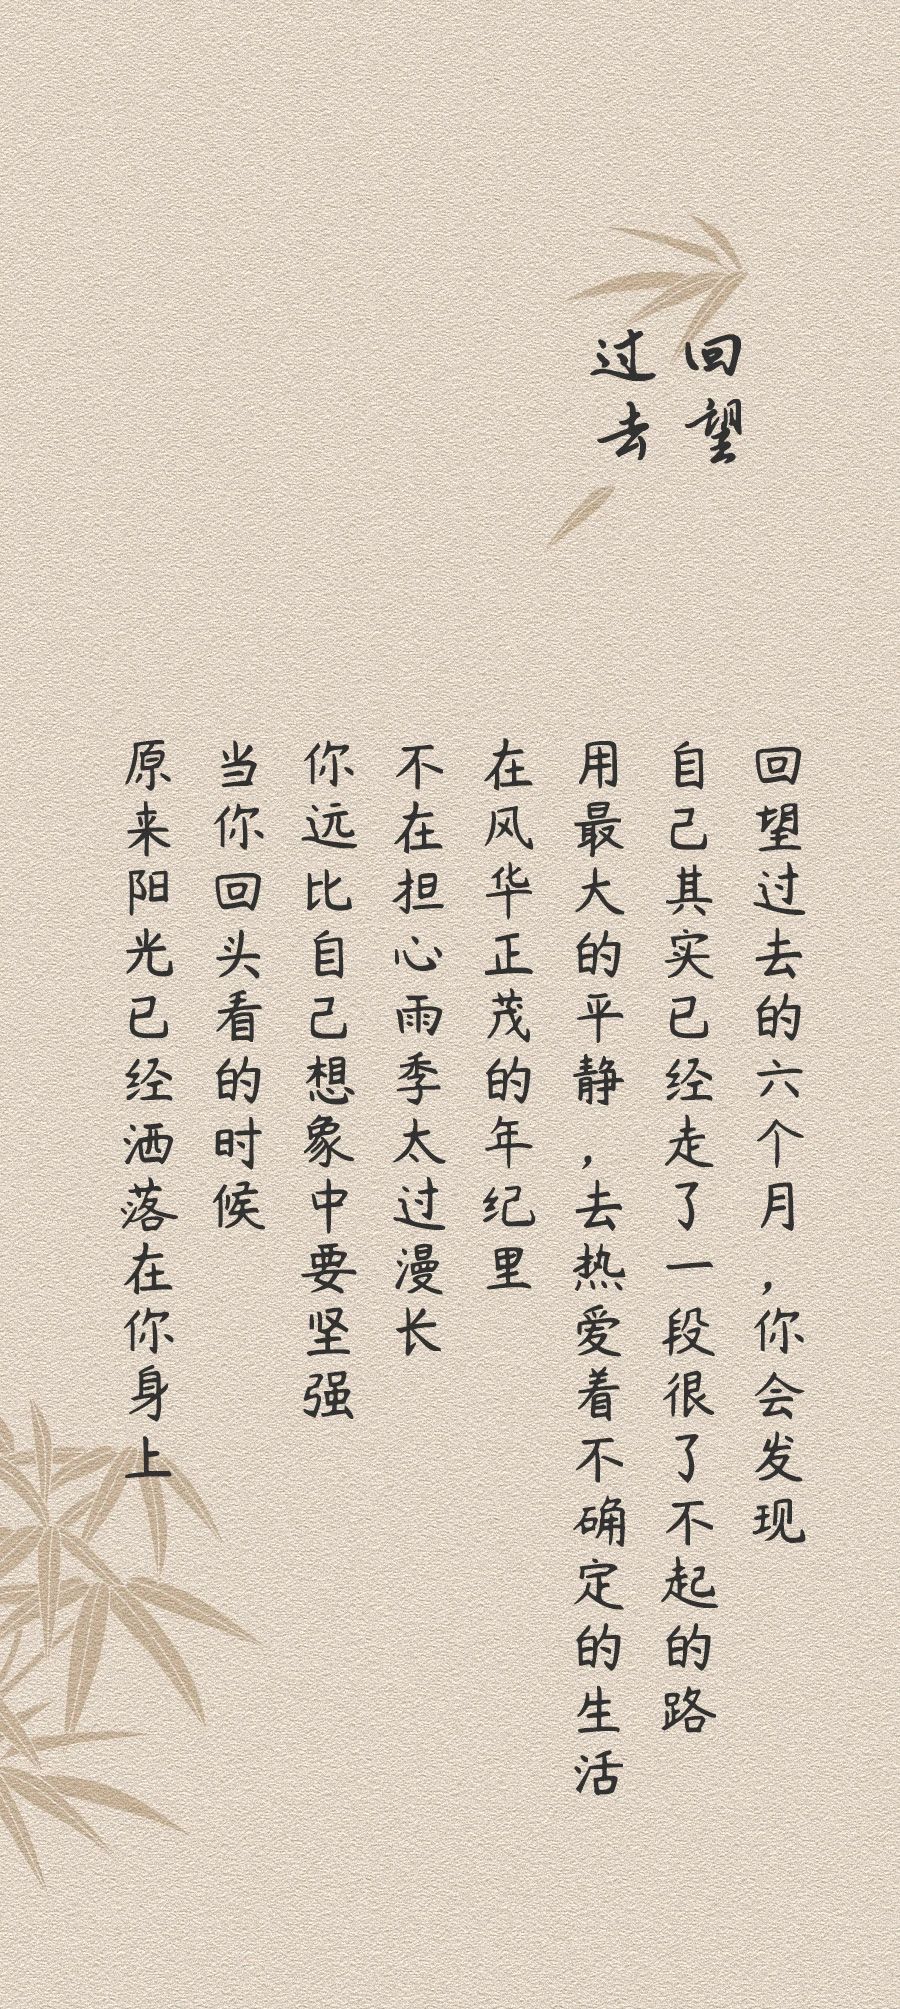 回望
过去
回望过去的六个月，你会发现
自己其实已经走了一段很了不起的路
用最大的平静，去热爱着不确定的生活
在风华正茂的年纪里
不在担心雨季太过漫长
你远比自己想象中要坚强
当你回头看的时候
原来阳光已经洒落在你身上